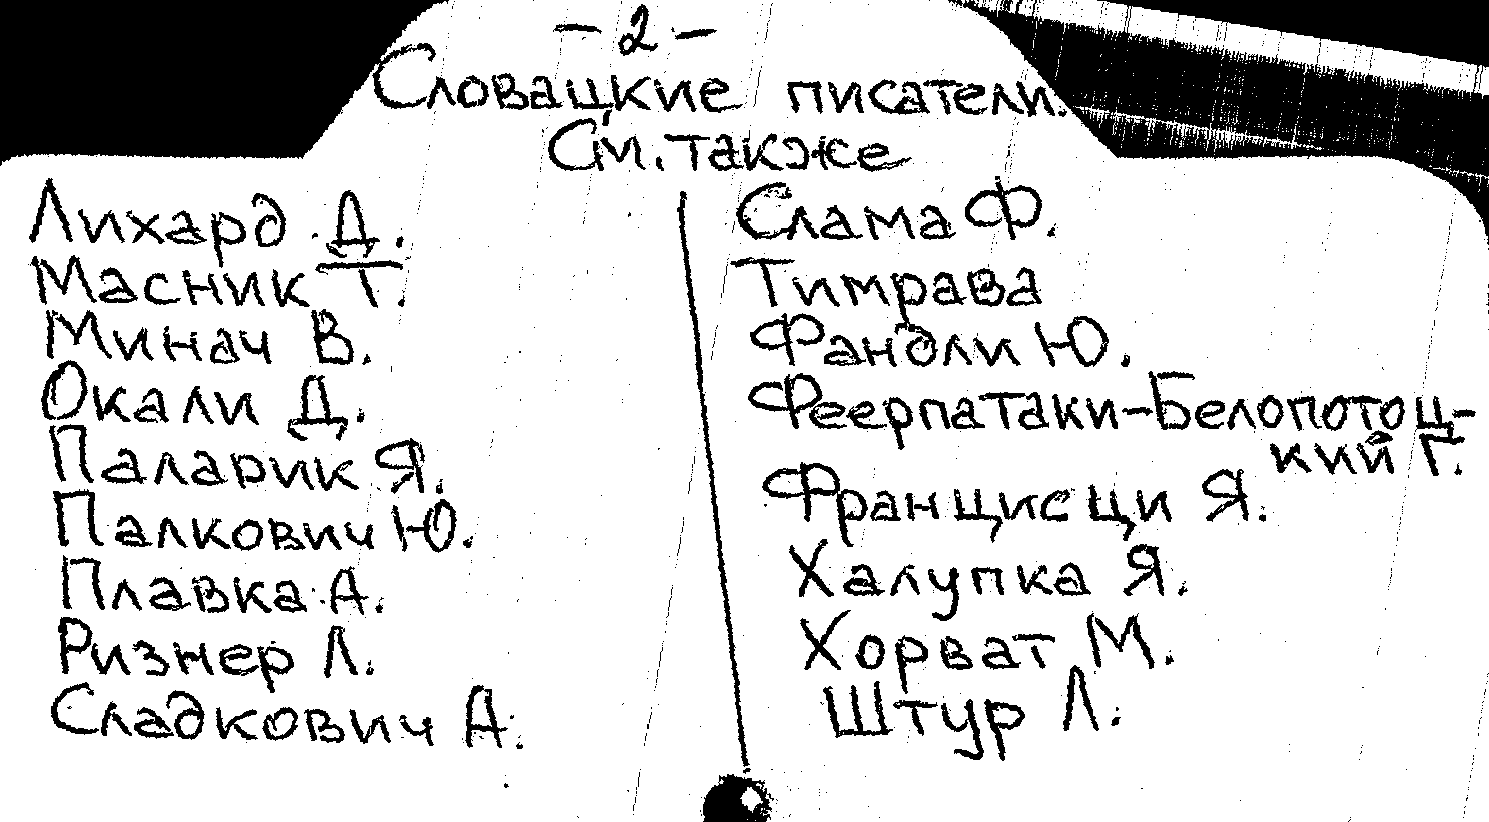 - 2 -
Словацкие писатели.
См. также
Лихард Д.
Масник Т.
Минач В.
Окали Д.
Паларик Я.
Палкович Ю.
Плавка А.
Ризнер Л.
Сладкович А.
Слама Ф.
Тимрава
Фандли Ю.
Феерпатаки-Белопотоц-
кий Г.
Францисци Я.
Халупка Я.
Хорват М.
Штур Л.